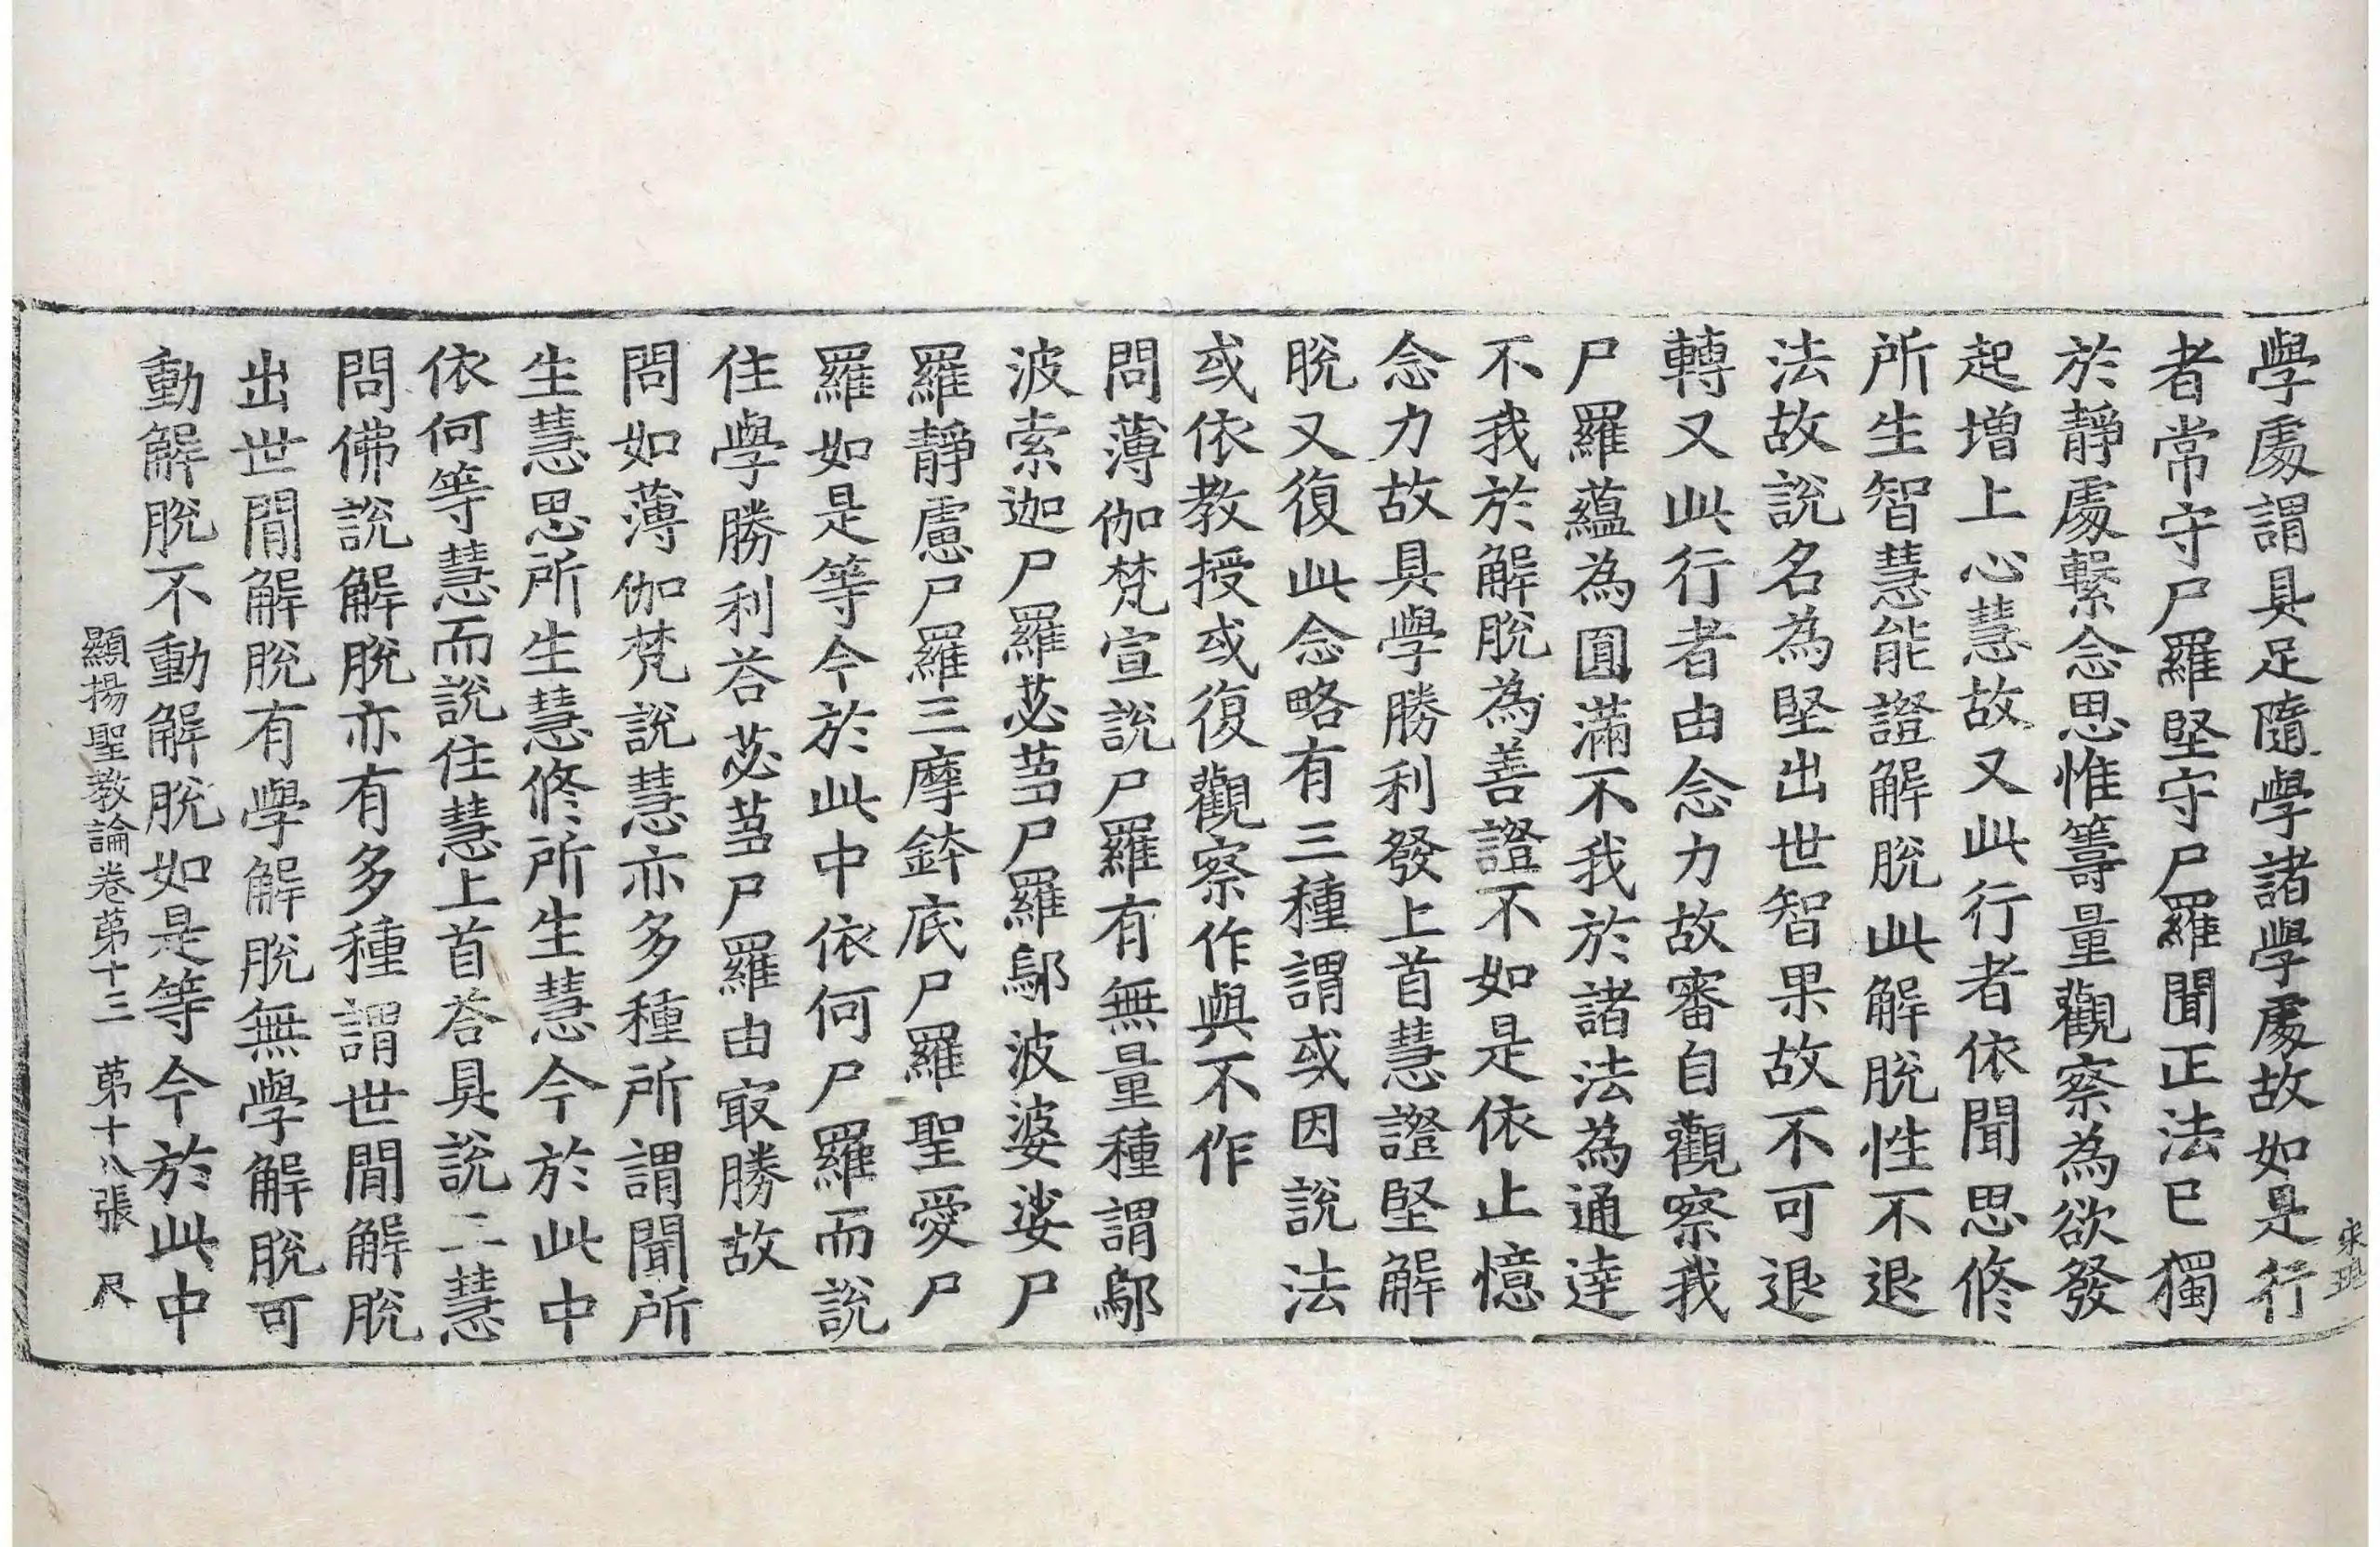 學處謂具足隨學諸學處故如是行
者常守尸羅堅守尸羅聞正法已獨
於靜處繫念思惟籌量觀察為欲發
起增上心慧故又此行者依聞思修
所生智慧能證解脫此解脫性不退
法故說名為堅出世智果故不可退
轉又此行者由念力故審自觀察我
尸羅蘊為圓滿不我於諸法為通達
不我於解脫為善證不如是依止憶
念力故具學勝利發上首慧證堅解
脫又復此念略有三種謂或因說法
或依教授或復觀察作與不作
問薄伽梵宣說尸羅有無量種謂鄔
波索迦尸羅苾芻尸羅鄔波婆娑尸
羅靜慮尸羅三摩鉢底尸羅聖愛尸
羅如是等今於此中依何尸羅而說
住學勝利荅苾芻尸羅由㝡勝故
問如薄伽梵說慧亦多種所謂聞所
生慧思所生慧修所生慧今於此中
依何等慧而說住慧上首荅具說三慧
問佛說解脫亦有多種謂世間解脫
出世間解脫有學解脫無學解脫可
動解脫不動解脫如是等今於此中
顯揚聖教論卷第十三　第十八張　尺